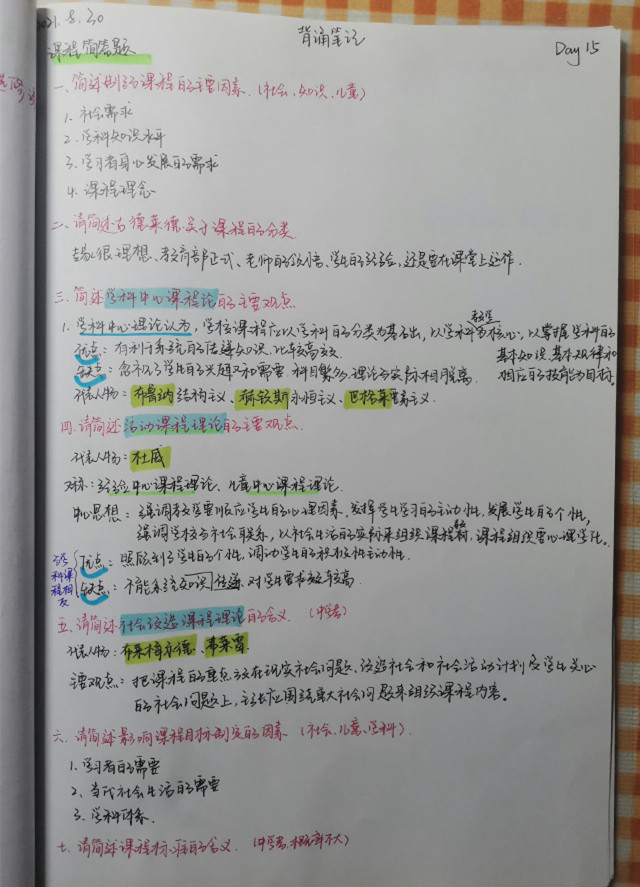 背诵笔记
21.8.30
Day 15
课程简答题
一、简述制约课程的主要因素.(社会、知识、儿童)
1. 社会需求
2. 学科知识水平
3. 学习者身心发展的需求
4. 课程理念
二、请简述古德莱德关于课程的分类
很理想、教育部正式、老师的领悟、学生的经验,还是要在课堂上运作.
三、简述学科中心课程论的主要观点
1. 学科中心理论认为,学校课程应以学科的分类为基础,以学科教学为核心,以掌握学科的
基本知识、基本规律和
相应的技能为目标.
优点:有利于系统的传递知识,比较高效
缺点:忽视了学生的兴趣和需要.科目繁多.理论与实际相脱离.
代表人物:布鲁纳结构主义、赫钦斯永恒主义、巴格莱要素主义.
四、请简述活动课程理论的主要观点.
代表人物:杜威
又称:经验中心课程理论、儿童中心课程理论.
中心思想:强调教学要顺应学生的心理因素,发挥学生学习的主动性,发展学生的个性,
强调学校与社会联系,以社会生活的实际来组织课程教材,课程组织要心理学化。
与学科课程相反
优点:照顾到了学生的个性,调动学生的积极性主动性.
缺点:不能系统知识传递.对学生要求较高.
五、请简述社会改造课程理论的含义.(中学考)
代表人物:布来梅尔德、弗莱雷
主要观点:把课程的重点放在现实社会问题、改造社会和社会活动计划及学生关心
的社会问题上,主张应围绕重大社会问题来组织课程内容。
六、请简述影响课程目标制定的因素.(社会、儿童、学科).
1. 学习者的需要
2. 当代社会生活的需要
3. 学科体系.
七、请简述课程标准的含义.(中学考,概率不大)